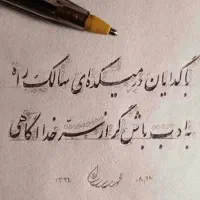 با گدایان در میکده‌ای سالک راه
با ادب باش گر از سرّ خدا آگاهی